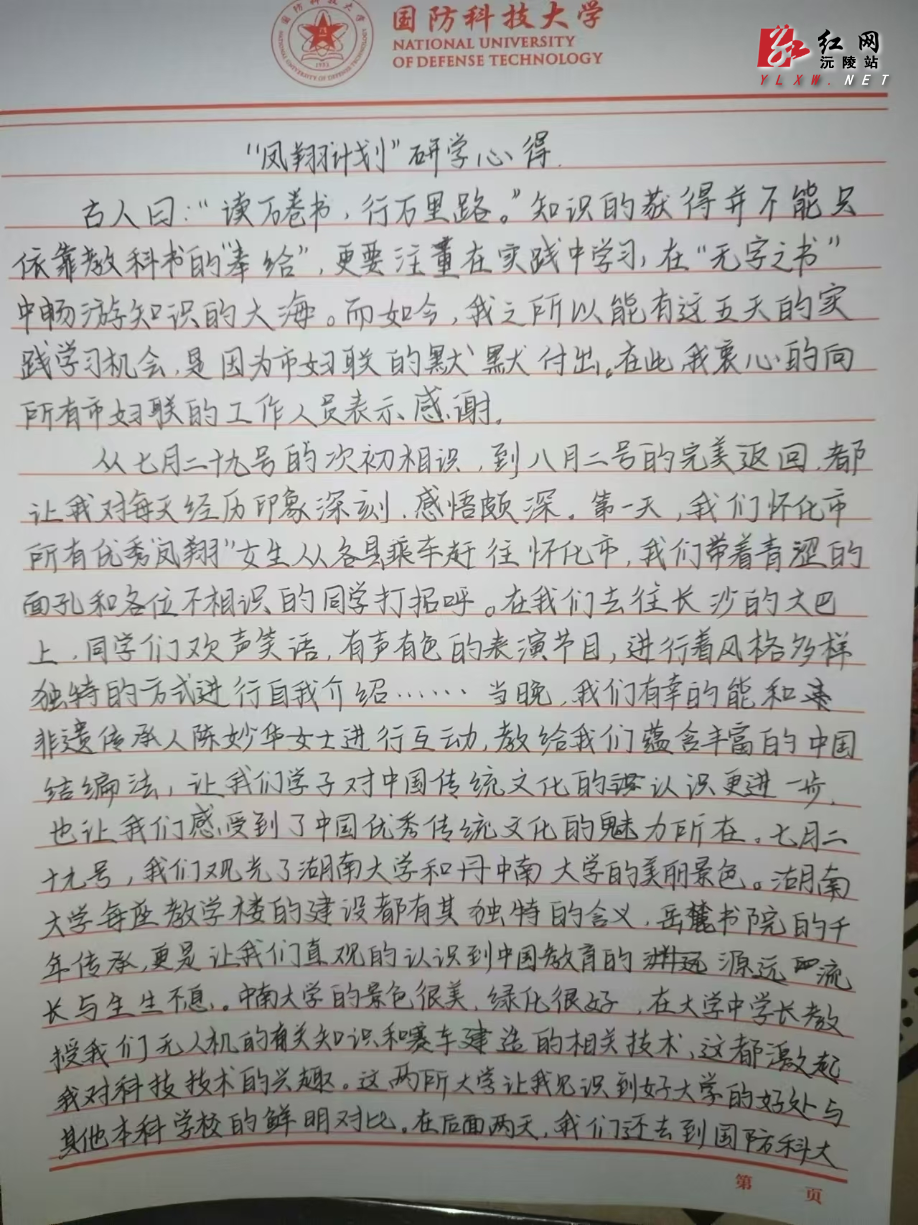 国防科技大学
NATIONAL UNIVERSITY
OF DEFENSE TECHNOLOGY
红网
沅陵站
YLXW.NET
“凤翔计划”研学心得.
古人曰：“读万卷书，行万里路。”知识的获得并不能只
依靠教科书的“奉给”，更要注重在实践中学习，在“无字之书”
中畅游知识的大海。而如今，我之所以能有这五天的实
践学习机会，是因为市妇联的默默付出。在此我衷心的向
所有市妇联的工作人员表示感谢。
从七月二十九号的次初相识，到八月二号的完美返回，都
让我对每天经历印象深刻，感悟颇深。第一天，我们怀化市
所有优秀“凤翔”女生从各县乘车赶往怀化市，我们带着青涩的
面孔和各位不相识的同学打招呼。在我们去往长沙的大巴
上，同学们欢声笑语，有声有色的表演节目，进行着风格多样
独特的方式进行自我介绍……当晚，我们有幸的能和
非遗传承人陈妙华女士进行互动，教给我们蕴含丰富的中国
结编法，让我们学子对中国传统文化的认识更进一步，
也让我们感受到了中国优秀传统文化的魅力所在。七月二
十九号，我们观光了湖南大学和中南大学的美丽景色。湖南
大学每座教学楼的建设都有其独特的含义，岳麓书院的千
年传承，更是让我们直观的认识到中国教育的源远流
长与生生不息。中南大学的景色很美，绿化很好，在大学中学长教
授我们无人机的有关知识和赛车建造的相关技术，这都激起
我对科技技术的兴趣。这两所大学让我见识到好大学的好处与
其他本科学校的鲜明对比。在后面两天，我们还去到国防科大
第 页